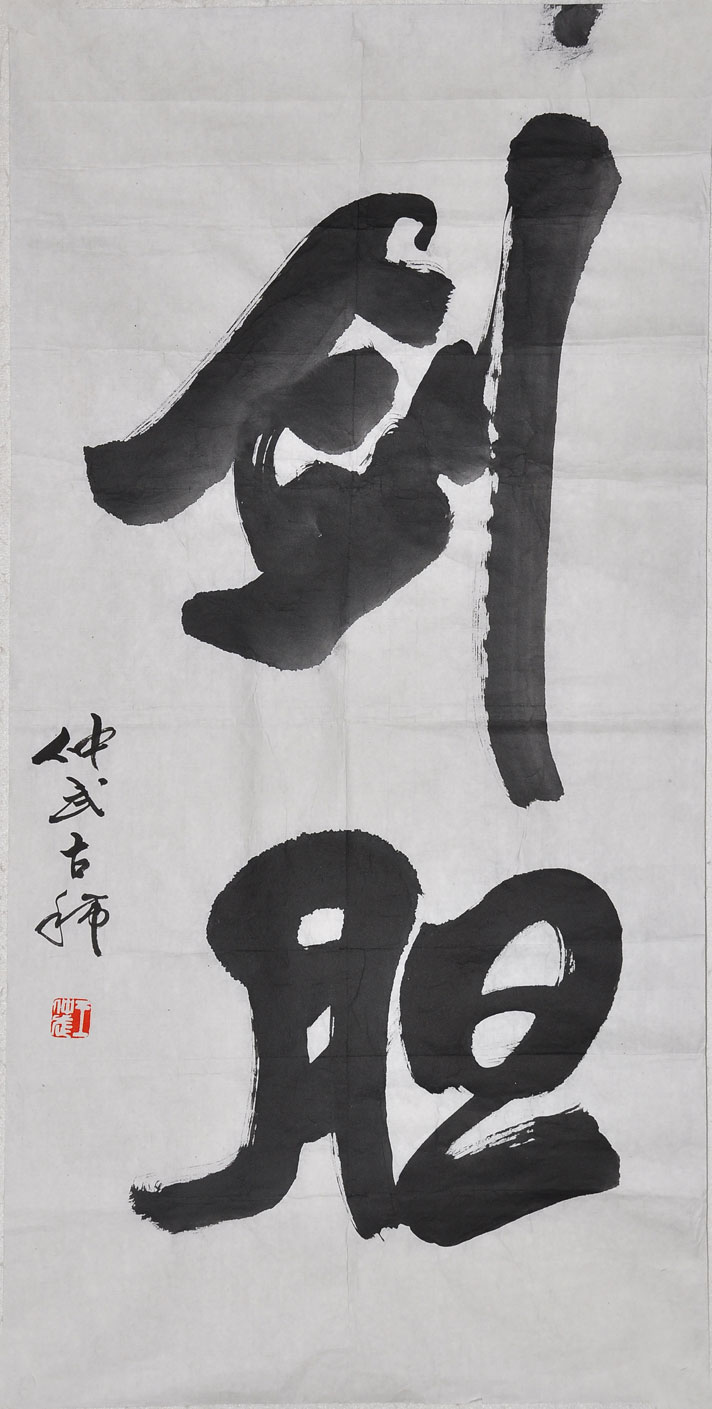 剑胆
仲武古稀